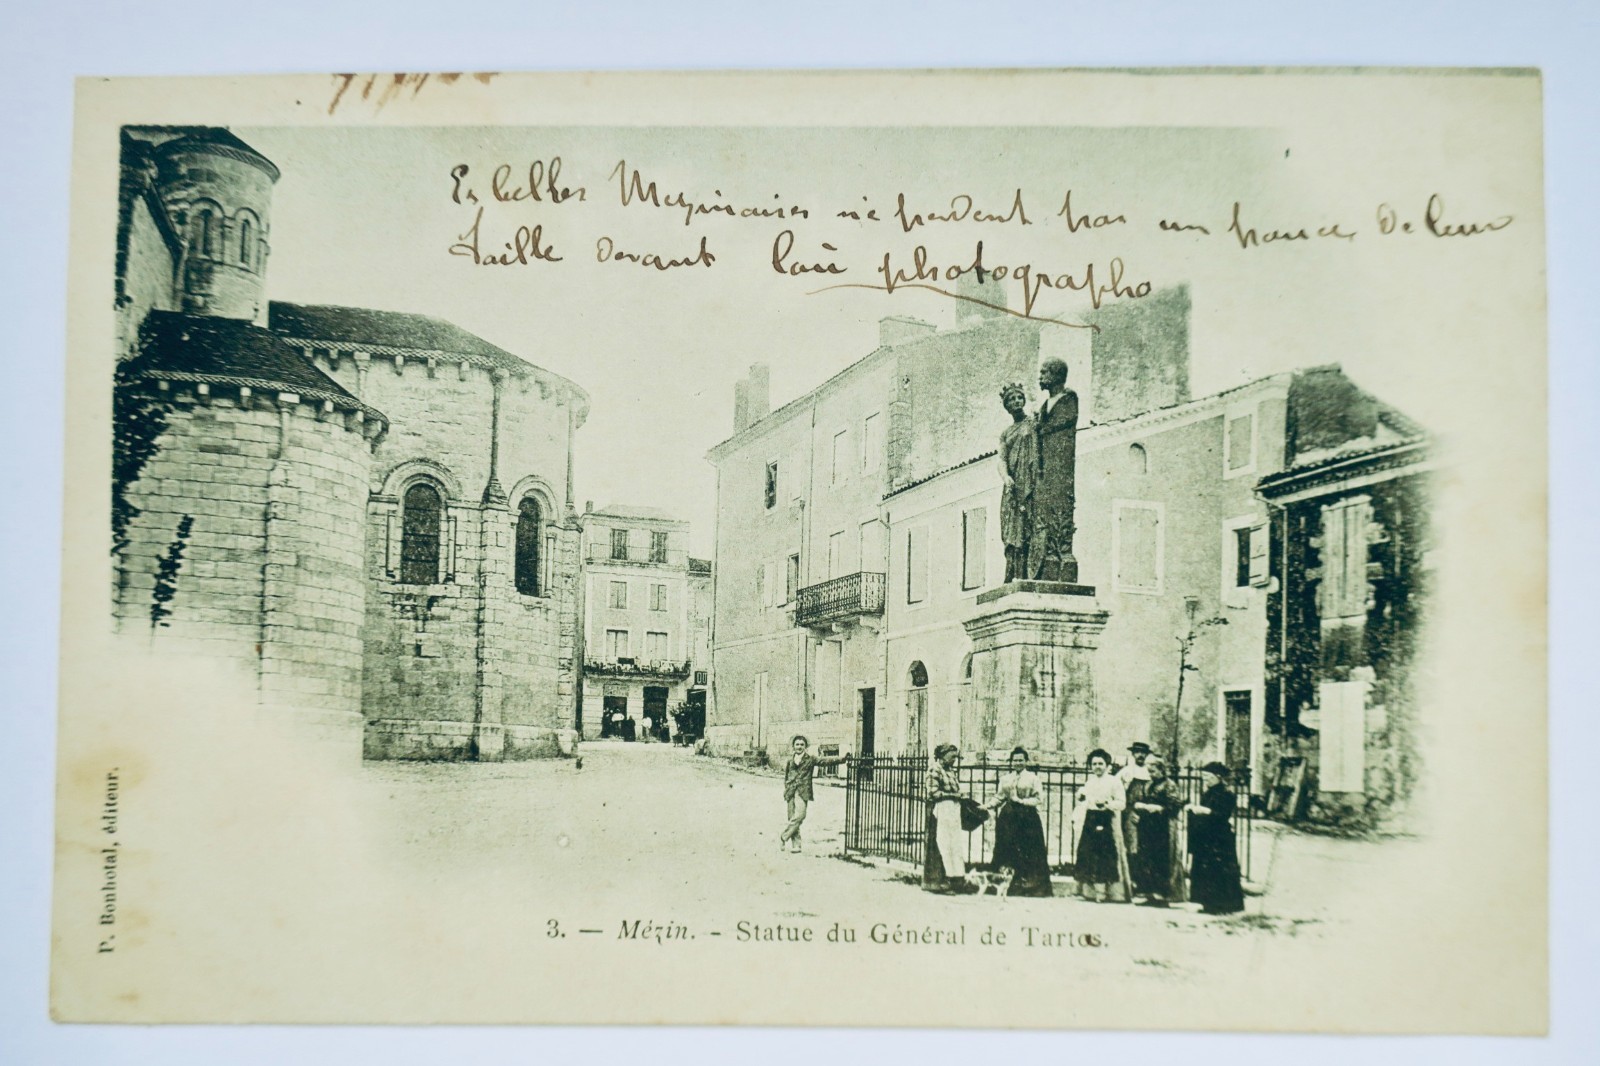 belles Mezinaises ne perdent pas un pouce de leur
taille devant photographe
3. — Mézin. - Statue du Général de Tartas.
P. Bonhotal, éditeur.